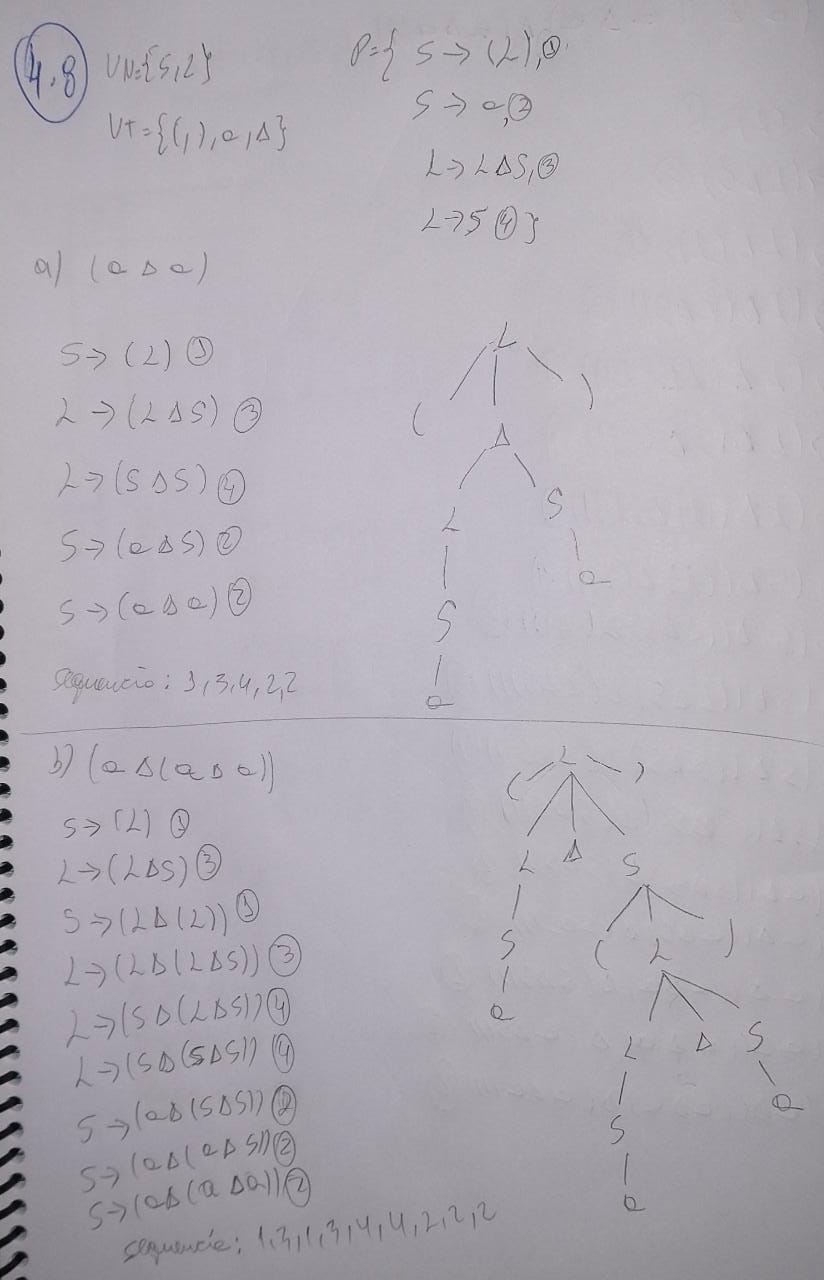 4.8
VN={S,L}
VT={(,),a,Δ}
P={ S→(L),①
S→a,②
L→LΔS,③
L→S④}
a) (aΔa)
S→(L)①
L→(LΔS)③
L→(SΔS)④
S→(aΔS)②
S→(aΔa)②
sequencia: 1,3,4,2,2
L
( )
Δ
L S
a
S
a
b) (aΔ(aΔa))
S→(L)①
L→(LΔS)③
S→(LΔ(L))①
L→(LΔ(LΔS))③
L→(SΔ(LΔS))④
L→(SΔ(SΔS))④
S→(aΔ(SΔS))②
S→(aΔ(aΔS))②
S→(aΔ(aΔa))②
sequencia: 1,3,1,3,4,4,2,2,2
( L )
L Δ S
S ( L )
a
L Δ S
a
S
a